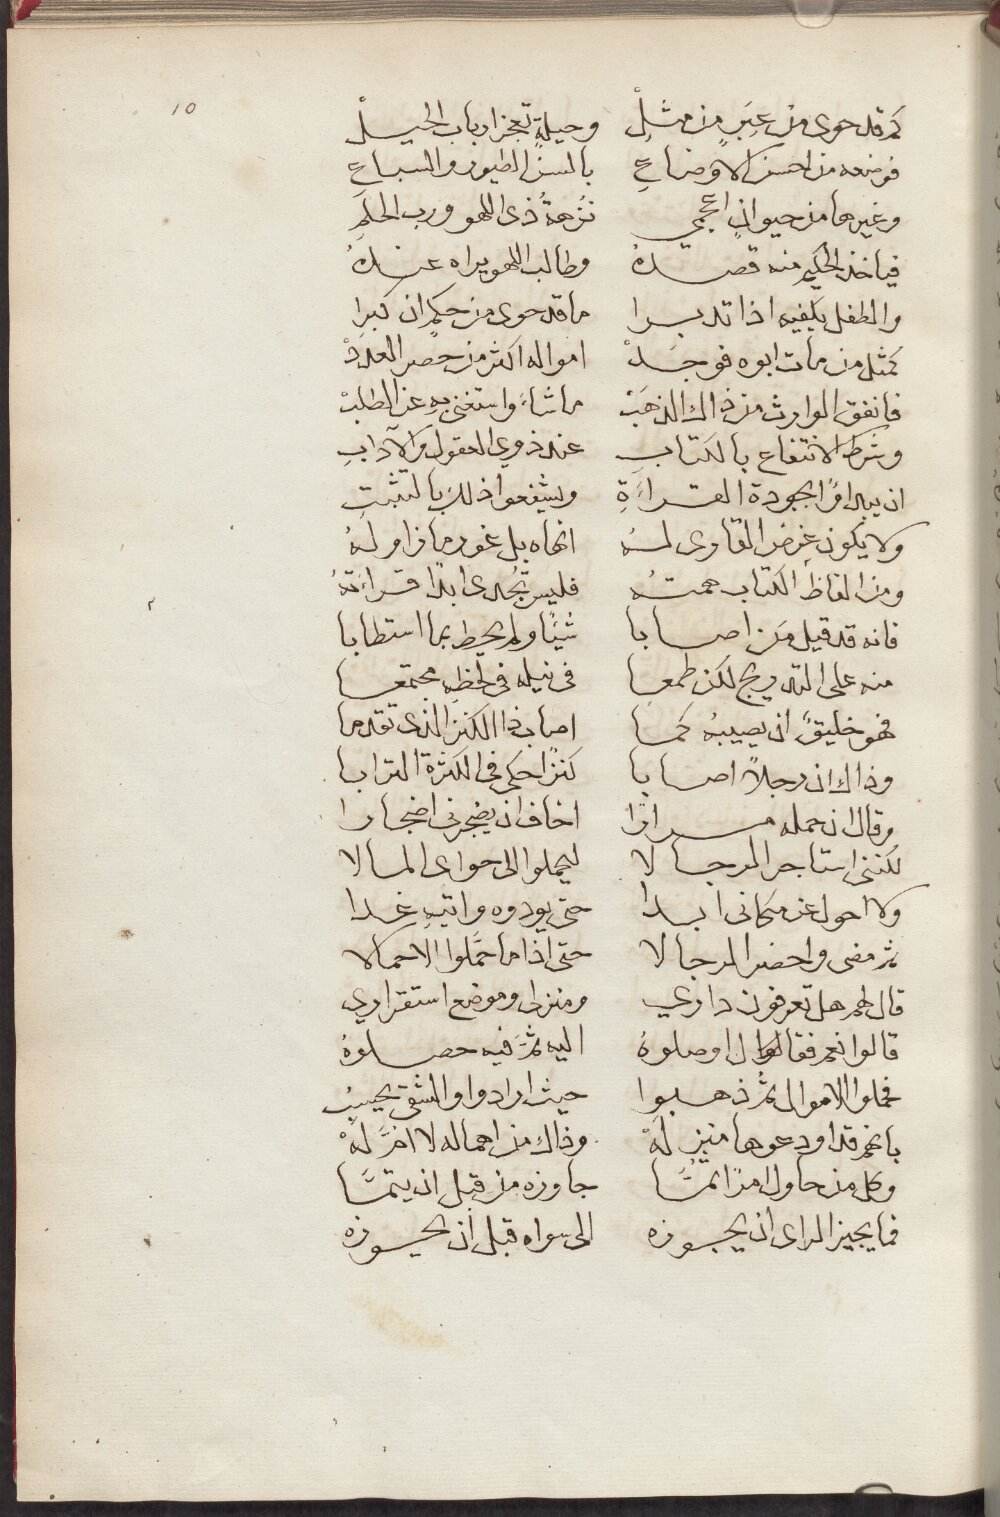 10
كم قد حوى من عبرٍ من مثلْ وحيلةٍ تعجز ارباب الحيلْ
فوضعه من احسن الاوضاعِ بالسن الطيور والسباعِ
وغيرها من حيوانٍ اعجمي نزهةُ ذى اللهو ورب الحلمِ
فياخذ الحكيم منه قصدهُ وطالب اللهو يراه عندهُ
والطفل يكفيه اذا تدبرا ما قد حوى من حكمٍ ان كبرا
كمثل من مات ابوه فوجدْ امواله اكثر من حصر العددْ
فانفق الوارث من ذاك الذهبْ ما شاءَ واستغنى به عن الطلبْ
وشرط الانتفاع بالكتابِ عند ذوي العقول والآدابِ
ان يبداوًا بجودة القراءَةِ ويشفعوا ذلك بالتثبتِ
ولا يكون غرض القارى لهُ انهاه بل غور ما زاولهُ
ومن الفاظُ الكتاب همتهُ فليس تُجدى ابدًا قراءَتهُ
فانه قد قيل من اصابا شيًا ولم يحط بما استطابا
منه على التدريج لكن طمعا فى نيله فى لحظةٍ مجتمعا
فهو خليقٌ ان يصيبهُ كما اصاب ذا الكنز الذى تقدما
وذاك ان رجلاً اصابا كنزًا حكى فى الكثرة الترابا
وقال ان حمله مرارًا اخاف ان يضجرنى اضجارا
لكننى استاجر الرجالا ليحملوا الى حواى المالا
ولا احول عن مكانى ابدا حتى يودوه واتيهِ غدا
ثم مضى واحضر الرجالا حتى اذا ما حمَّلوا الاحمالا
قال لهم هل تعرفون داري ومنزلى وموضع استقراري
قالوا نعم فقال اوصلوهُ اليه ثمَّ فيه حصلوهُ
فحملوا الاموال ثمَّ ذهبوا حيث ارادوا والشقى يحسبُ
بانهم قد اودعوها منزلَهْ وذاك من اهماله لا امَّ لَهْ
وكل من حاول امرًا تمَّا جاوزه من قبل ان يتمَّا
فما يجيز الراى ان يجوزه الى سواه قبل ان يحوزه